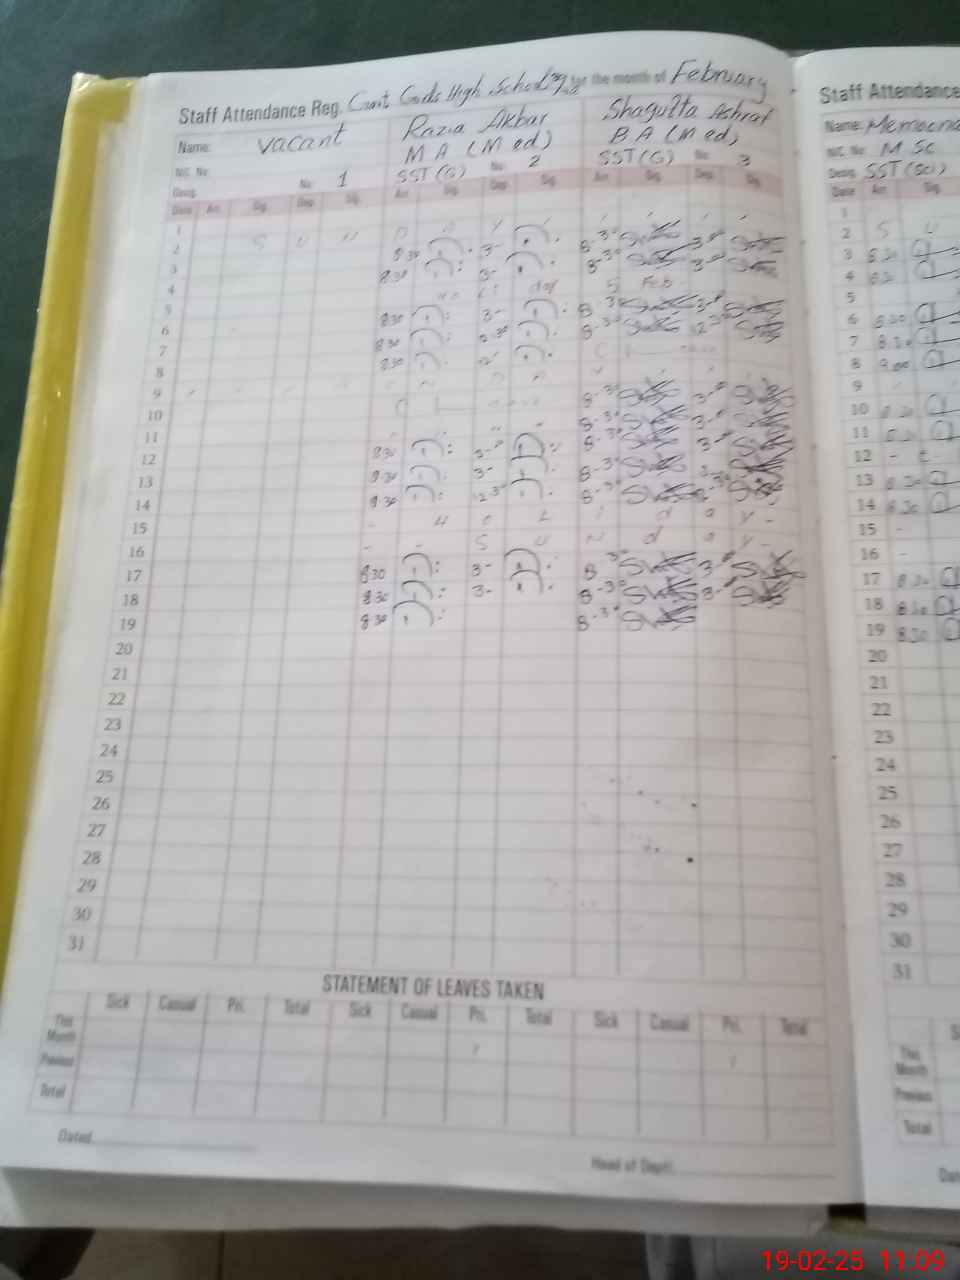 Staff Attendance Reg. Govt Girls High School for the month of February
Name: vacant Razia Akbar Shagufta Ashraf
M A (M ed) B A (M ed)
N.I.C. No SST (G) SST (G)
Desig. No 1 No 2 No 3
Date Arr. Sig. Dep. Sig. Arr. Sig. Dep. Sig. Arr. Sig. Dep. Sig.
1
2 S U N D A Y
3 8.30 3- 8-30 3-0
4 8.30 3- 8-30 3-0
5 day 5 Feb
6 8.30 3- 8-30
7 8.30 12.30 8-30 12-30
8 8.30 12
9
10 8-30 3-0
11 8-30 3-0
12 8.30 3-0 8-30 3-0
13 8.30 3- 8-30
14 8.30 12.30 8-30
15 - H o L i d a y -
16 - - S U N d a y -
17 8.30 3- 8-30 3-0
18 8.30 3- 8-30 3-0
19 8.30 8-30
20
21
22
23
24
25
26
27
28
29
30
31
STATEMENT OF LEAVES TAKEN
Sick Casual Pri. Total Sick Casual Pri. Total Sick Casual Pri. Total
This Month
Previous
Total
Dated
Head of Deptt.
Staff Attendance
Name:
N.I.C. No M Sc
Desig. SST (Sci)
Date Arr. Sig.
1
2 S U
3 8.30
4 8.30
5
6 8.30
7 8.30
8 9.00
9
10 8.30
11 8.30
12
13 8.30
14 8.30
15 -
16 -
17 8.30
18 8.30
19 8.30
20
21
22
23
24
25
26
27
28
29
30
31
This Month
Previous
Total
19-02-25 11:09